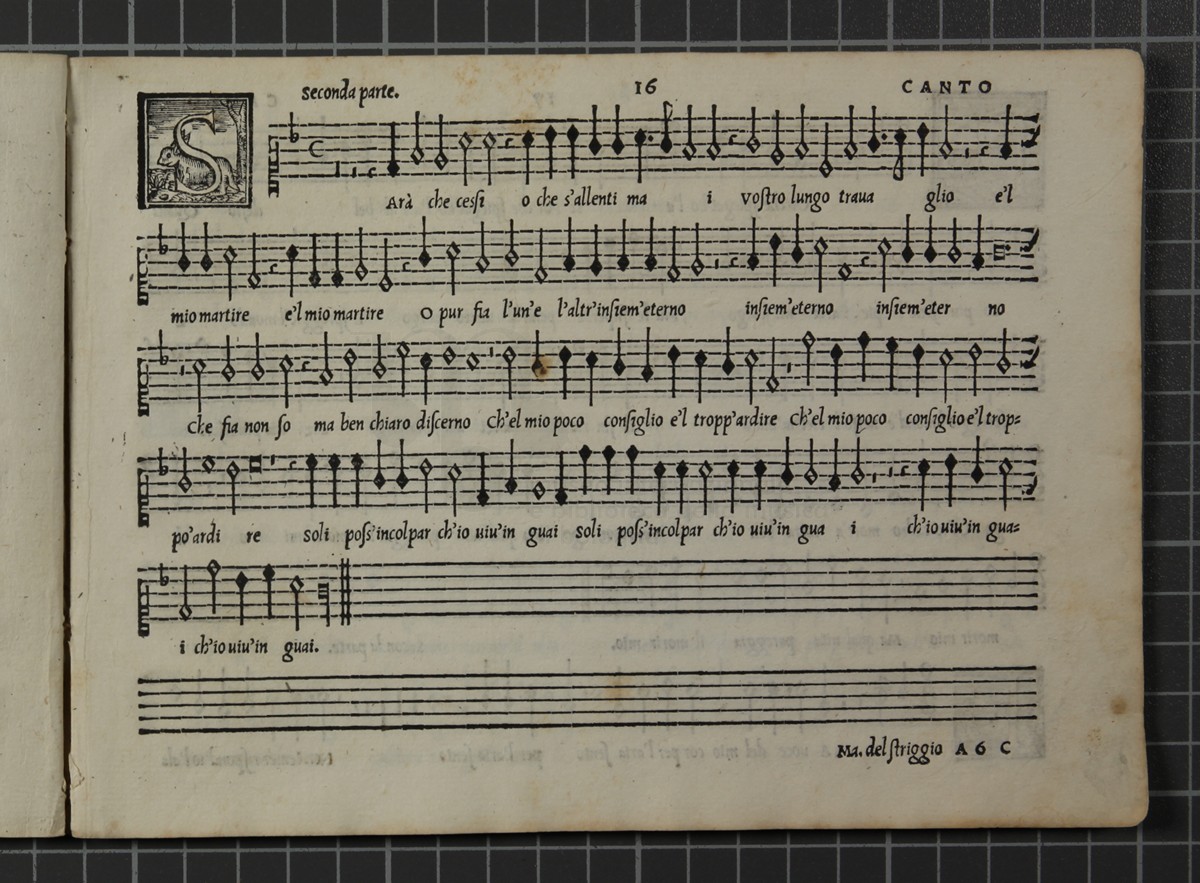 Seconda parte. 16 CANTO
S Arà che cessi o che s'allenti ma i vostro lungo traua glio e'l
mio martire e'l mio martire O pur fia l'un'e l'altr'insiem'eterno insiem'eterno insiem'eter no
Che fia non so ma ben chiaro discerno Ch'el mio poco consiglio e'l tropp'ardire Ch'el mio poco consiglio e'l trop=
po'ardi re soli poss'incolpar ch'io uiu'in guai soli poss'incolpar ch'io uiu'in gua i ch'io uiu'in gua=
i ch'io uiu'in guai.
Ma. del striggio A 6 C